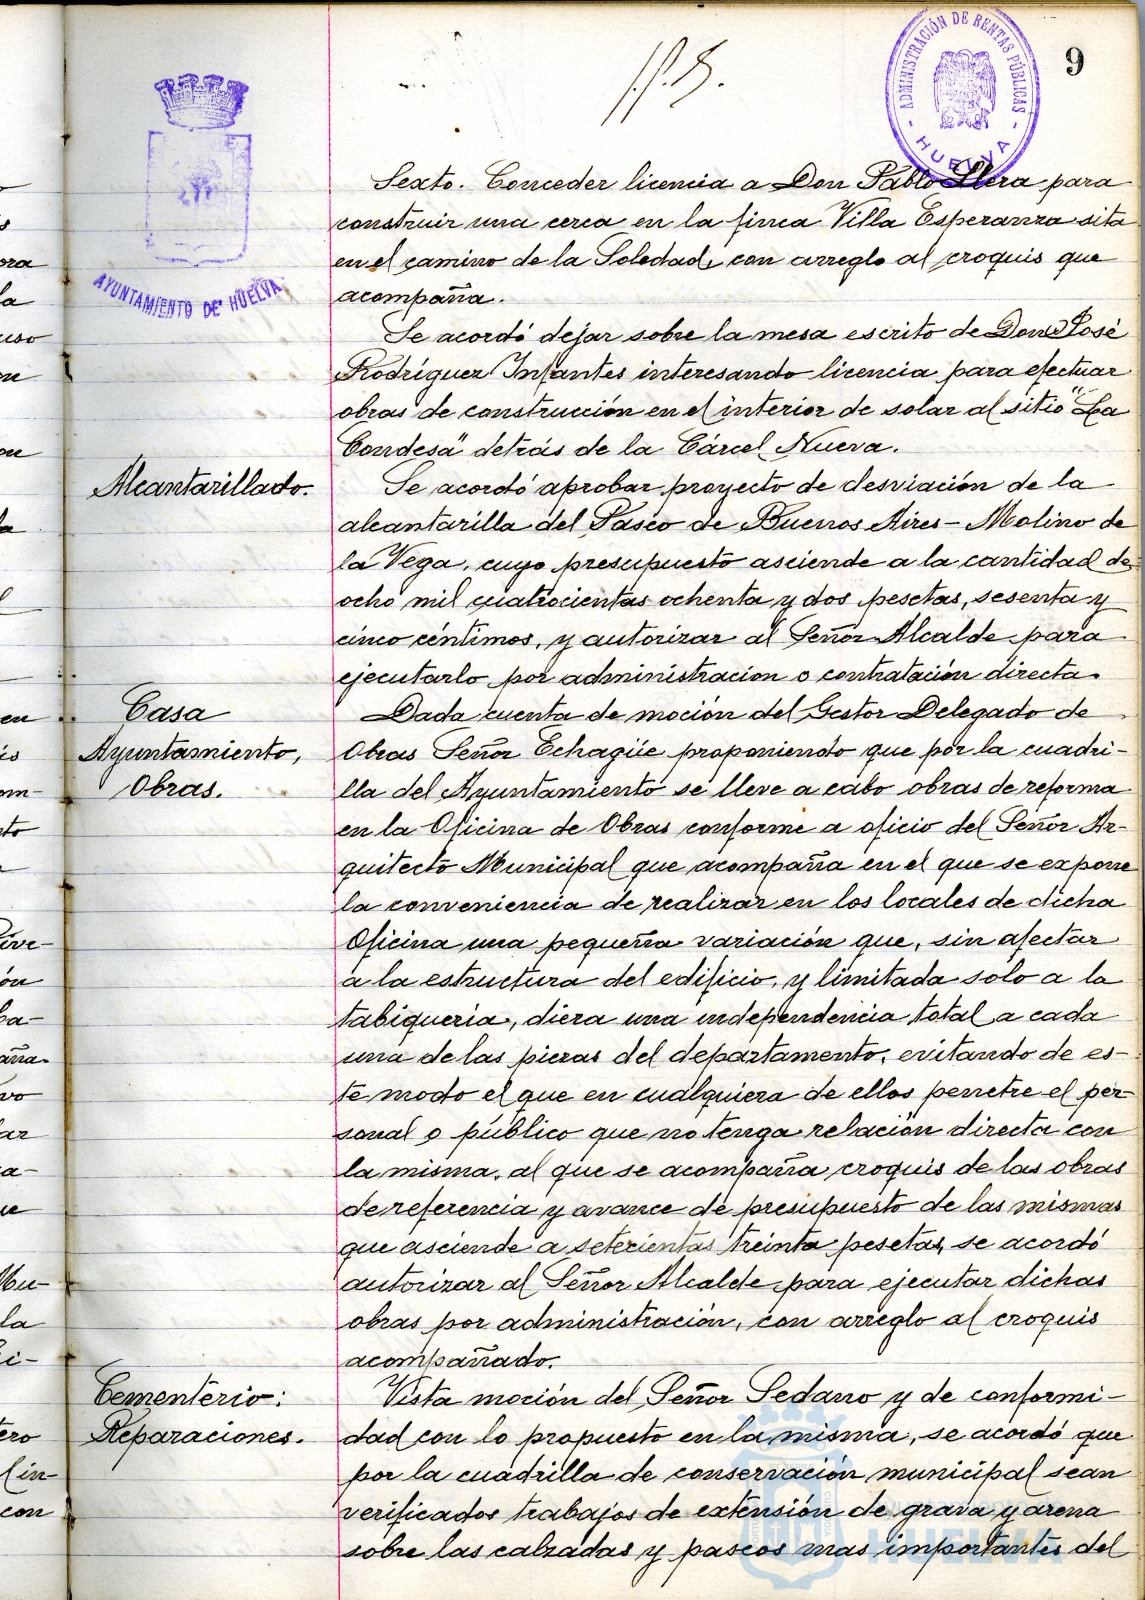 9
ADMINISTRACIÓN DE RENTAS PÚBLICAS
- HUELVA -
AYUNTAMIENTO DE HUELVA
Sexto. Conceder licencia a Don Pablo Llera para
construir una cerca en la finca Villa Esperanza sita
en el camino de la Soledad, con arreglo al croquis que
acompaña.
Se acordó dejar sobre la mesa escrito de Don José
Rodríguez Infantes interesando licencia para efectuar
obras de construcción en el interior de solar al sitio "La
Condesa" detrás de la Cárcel Nueva.
Alcantarillado.
Se acordó aprobar proyecto de desviación de la
alcantarilla del Paseo de Buenos Aires - Molino de
la Vega, cuyo presupuesto asciende a la cantidad de
ocho mil cuatrocientas ochenta y dos pesetas, sesenta y
cinco céntimos, y autorizar al Señor Alcalde para
ejecutarlo por administración o contratación directa.
Casa
Ayuntamiento,
Obras.
Dada cuenta de moción del Gestor Delegado de
Obras Señor Echagüe proponiendo que por la cuadri-
lla del Ayuntamiento se lleve a cabo obras de reforma
en la Oficina de Obras conforme a oficio del Señor Ar-
quitecto Municipal que acompaña en el que se expone
la conveniencia de realizar en los locales de dicha
Oficina una pequeña variación que, sin afectar
a la estructura del edificio, y limitada solo a la
tabiqueria, diera una independencia total a cada
una de las piezas del departamento, evitando de es-
te modo el que en cualquiera de ellos penetre el per-
sonal o público que no tenga relación directa con
la misma, al que se acompaña croquis de las obras
de referencia y avance de presupuesto de las mismas
que asciende a setecientas treinta pesetas, se acordó
autorizar al Señor Alcalde para ejecutar dichas
obras por administración, con arreglo al croquis
acompañado.
Cementerio:
Reparaciones.
Vista moción del Señor Sedano y de conformi-
dad con lo propuesto en la misma, se acordó que
por la cuadrilla de conservación municipal sean
verificados trabajos de extensión de grava y arena
sobre las calzadas y paseos mas importantes del